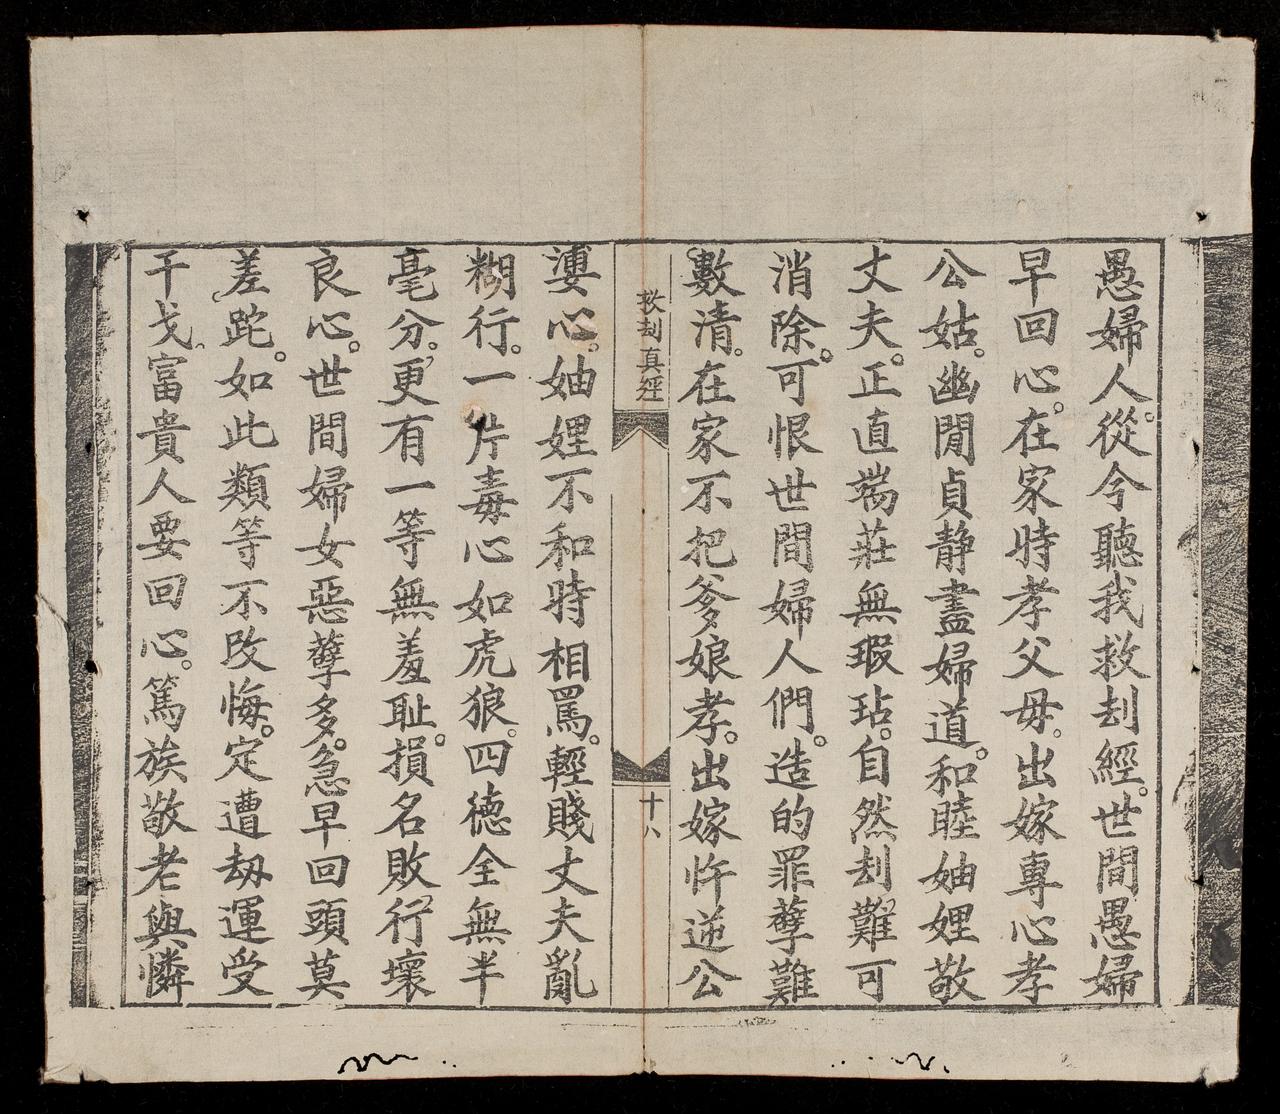 愚婦人。從今聽我救刦經。世間愚婦
早回心。在家時孝父毋。出嫁專心孝
公姑。幽閒貞静盡婦道。和睦妯娌敬
丈夫。正直端莊無瑕玷。自然刦難可
消除。可恨世間婦人們。造的罪孽難
數清。在家不把爹娘孝。出嫁忤逆公
救刦真經
十八
婆心。妯娌不和時相罵。輕賤丈夫亂
糊行。一片毒心如虎狼。四德全無半
毫分。更有一等無羞恥。損名敗行壞
良心。世間婦女惡孽多。急早回頭莫
差跎。如此類等不改悔。定遭刼運受
干戈。富貴人要回心。篤族敬老與憐